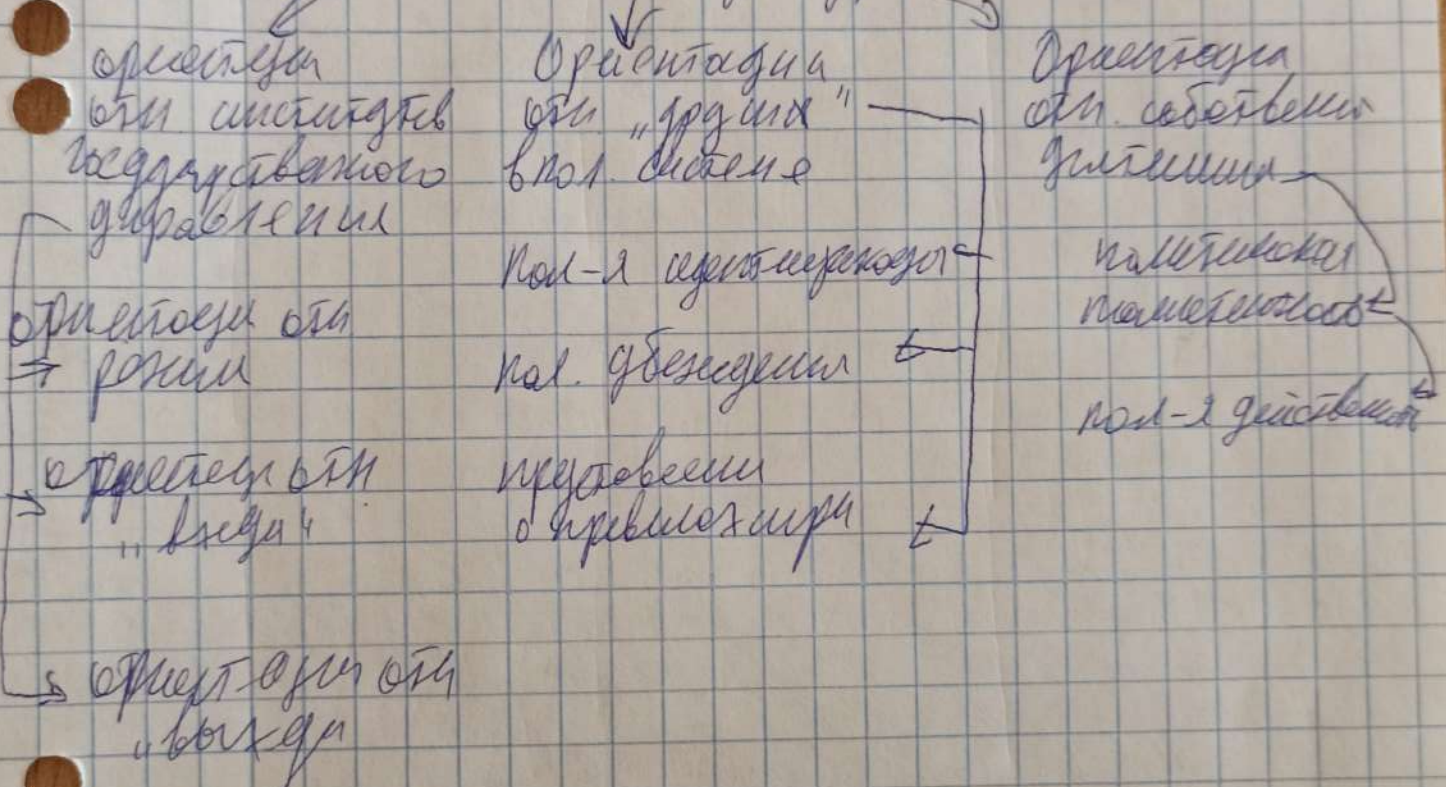 ориентации
отн институтов
государственного
управления
ориентации отн
режим
ориентации отн
"входа"
ориентации отн
"выхода
Ориентации
отн „других"
в пол. системе
пол-я идентификация
пол. убеждения
представления
о правилах игры
Ориентация
отн. собственной
политическая
пол-я действенность